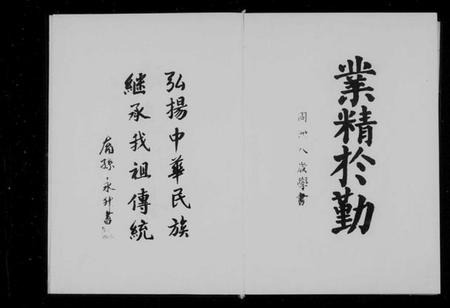 業精於勤
周卅八歲學書
弘揚中華民族
繼承我祖傳統
裔孫永升書